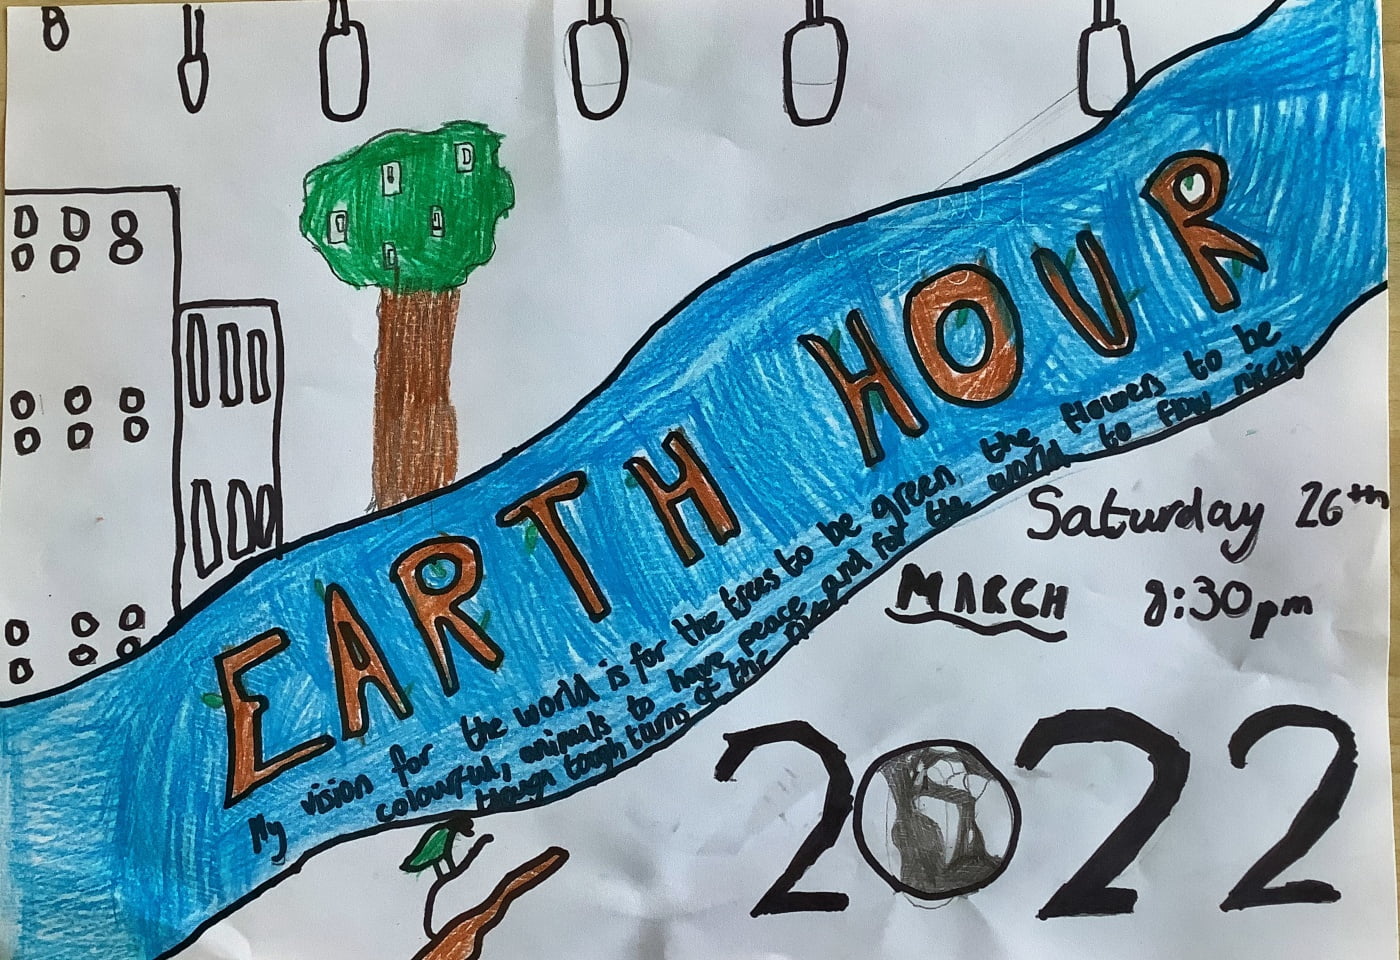 EARTH HOUR
My vision for the world is for the trees to be green, the flowers to be
colourful, animals to have peace and for the world to flow nicely
though tough turns of the
Saturday 26th
MARCH 8:30pm
2022